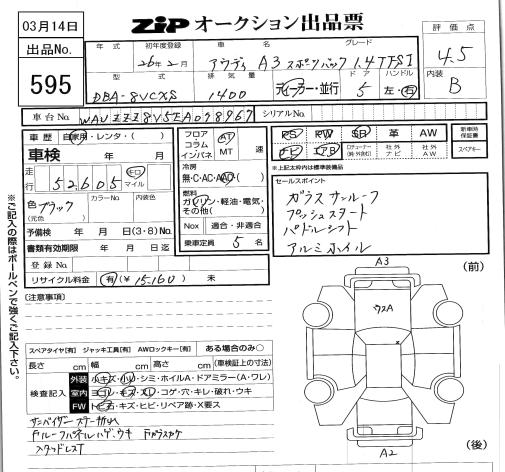 03月14日
出品No.
595
ZIP オークション出品票
評価点
4.5
内装
B
年式 初年度登録 車名 グレード
26年2月 アウディ A3 スポーツバック 1.4TFSI
型式 排気量 ドア ハンドル
DBA-8VCXS 1400 ディーラー・並行 5 左・右
車台No. WAUZZZ8V5EA098967 シリアルNo.
車歴 自家用・レンタ・( )
車検 年 月
走行 52,605 キロ マイル
色 (元色) ブラック カラーNo. 内装色
予備検 年 月 日(3・8)No.
書類有効期限 年 月 日迄
登録No.
リサイクル料金 有(¥ 15,160) 未
フロア コラム インパネ AT MT 速
冷房
無・C・AC・AAC・( )
燃料
ガソリン・軽油・電気・その他( )
Nox 適合・非適合
乗車定員 5 名
PS PW SR 革 AW
ナビ エアB 社外ナビ 社外AW
新車時保証書
スペアキー
※上記太枠内は標準装備品
セールスポイント
ガラスサンルーフ
プッシュスタート
パドルシフト
アルミホイル
※ご記入の際はボールペンで強くご記入下さい。
(注意事項)
スペアタイヤ[有] ジャッキ工具[有] AWロックキー[有] ある場合のみ○
長さ cm 幅 cm 高さ cm (車検証上の寸法)
検査記入
外装 小キズ・小凹・シミ・ホイルA・ドアミラー(A・ワレ)
室内 ヨゴレ・キズ・スレ・コゲ・穴・キレ・破れ・ウキ
FW トビ石・キズ・ヒビ・リペア跡・X要ス
サンバイザーステー折れ
スタッドレスT
A3
(前)
ウスA
x
A2
(後)